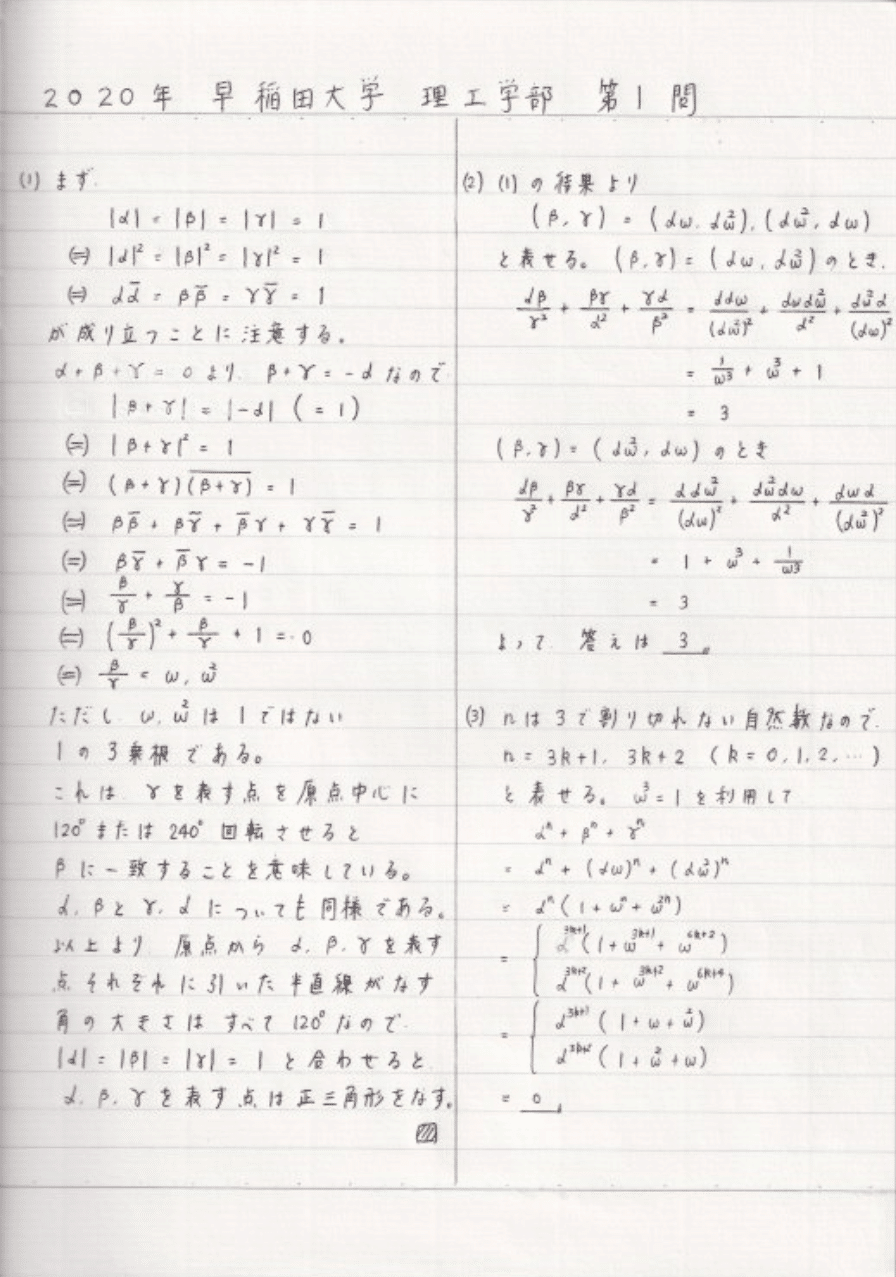 2020年 早稲田大学 理工学部 第1問
(1) まず.
|α| = |β| = |γ| = 1
⇔ |α|² = |β|² = |γ|² = 1
⇔ αᾱ = ββ̄ = γγ̄ = 1
が成り立つことに注意する。
α+β+γ = 0 より. β+γ = -α なので
|β+γ| = |-α| ( = 1)
⇔ |β+γ|² = 1
⇔ (β+γ)(\overline{β+γ}) = 1
⇔ ββ̄ + βγ̄ + β̄γ + γγ̄ = 1
⇔ βγ̄ + β̄γ = -1
⇔ β/γ + γ/β = -1
⇔ (β/γ)² + β/γ + 1 = 0
⇔ β/γ = ω, ω²
ただし ω, ω² は 1 ではない
1 の 3 乗根である。
これは γ を表す点を原点中心に
120° または 240° 回転させると
β に一致することを意味している。
α, β と γ, α についても同様である。
以上より 原点から α, β, γ を表す
点それぞれに引いた半直線がなす
角の大きさは すべて 120° なので.
|α| = |β| = |γ| = 1 と合わせると
α, β, γ を表す点は正三角形をなす。
(2) (1) の結果より
(β, γ) = (αω, αω²), (αω², αω)
と表せる。 (β, γ) = (αω, αω²) のとき.
αβ/γ² + βγ/α² + γα/β² = ααω/(αω²)² + αωαω²/α² + αω²α/(αω)²
= 1/ω³ + ω³ + 1
= 3
(β, γ) = (αω², αω) のとき
αβ/γ² + βγ/α² + γα/β² = ααω²/(αω)² + αω²αω/α² + αωα/(αω²)²
= 1 + ω³ + 1/ω³
= 3
よって. 答えは 3
(3) n は 3 で割り切れない自然数なので.
n = 3k+1, 3k+2 (k = 0, 1, 2, …)
と表せる。 ω³ = 1 を利用して
αⁿ + βⁿ + γⁿ
= αⁿ + (αω)ⁿ + (αω²)ⁿ
= αⁿ (1 + ωⁿ + ω²ⁿ)
= { α^{3k+1} (1 + ω^{3k+1} + ω^{6k+2})
α^{3k+2} (1 + ω^{3k+2} + ω^{6k+4})
= { α^{3k+1} (1 + ω + ω²)
α^{3k+2} (1 + ω² + ω)
= 0